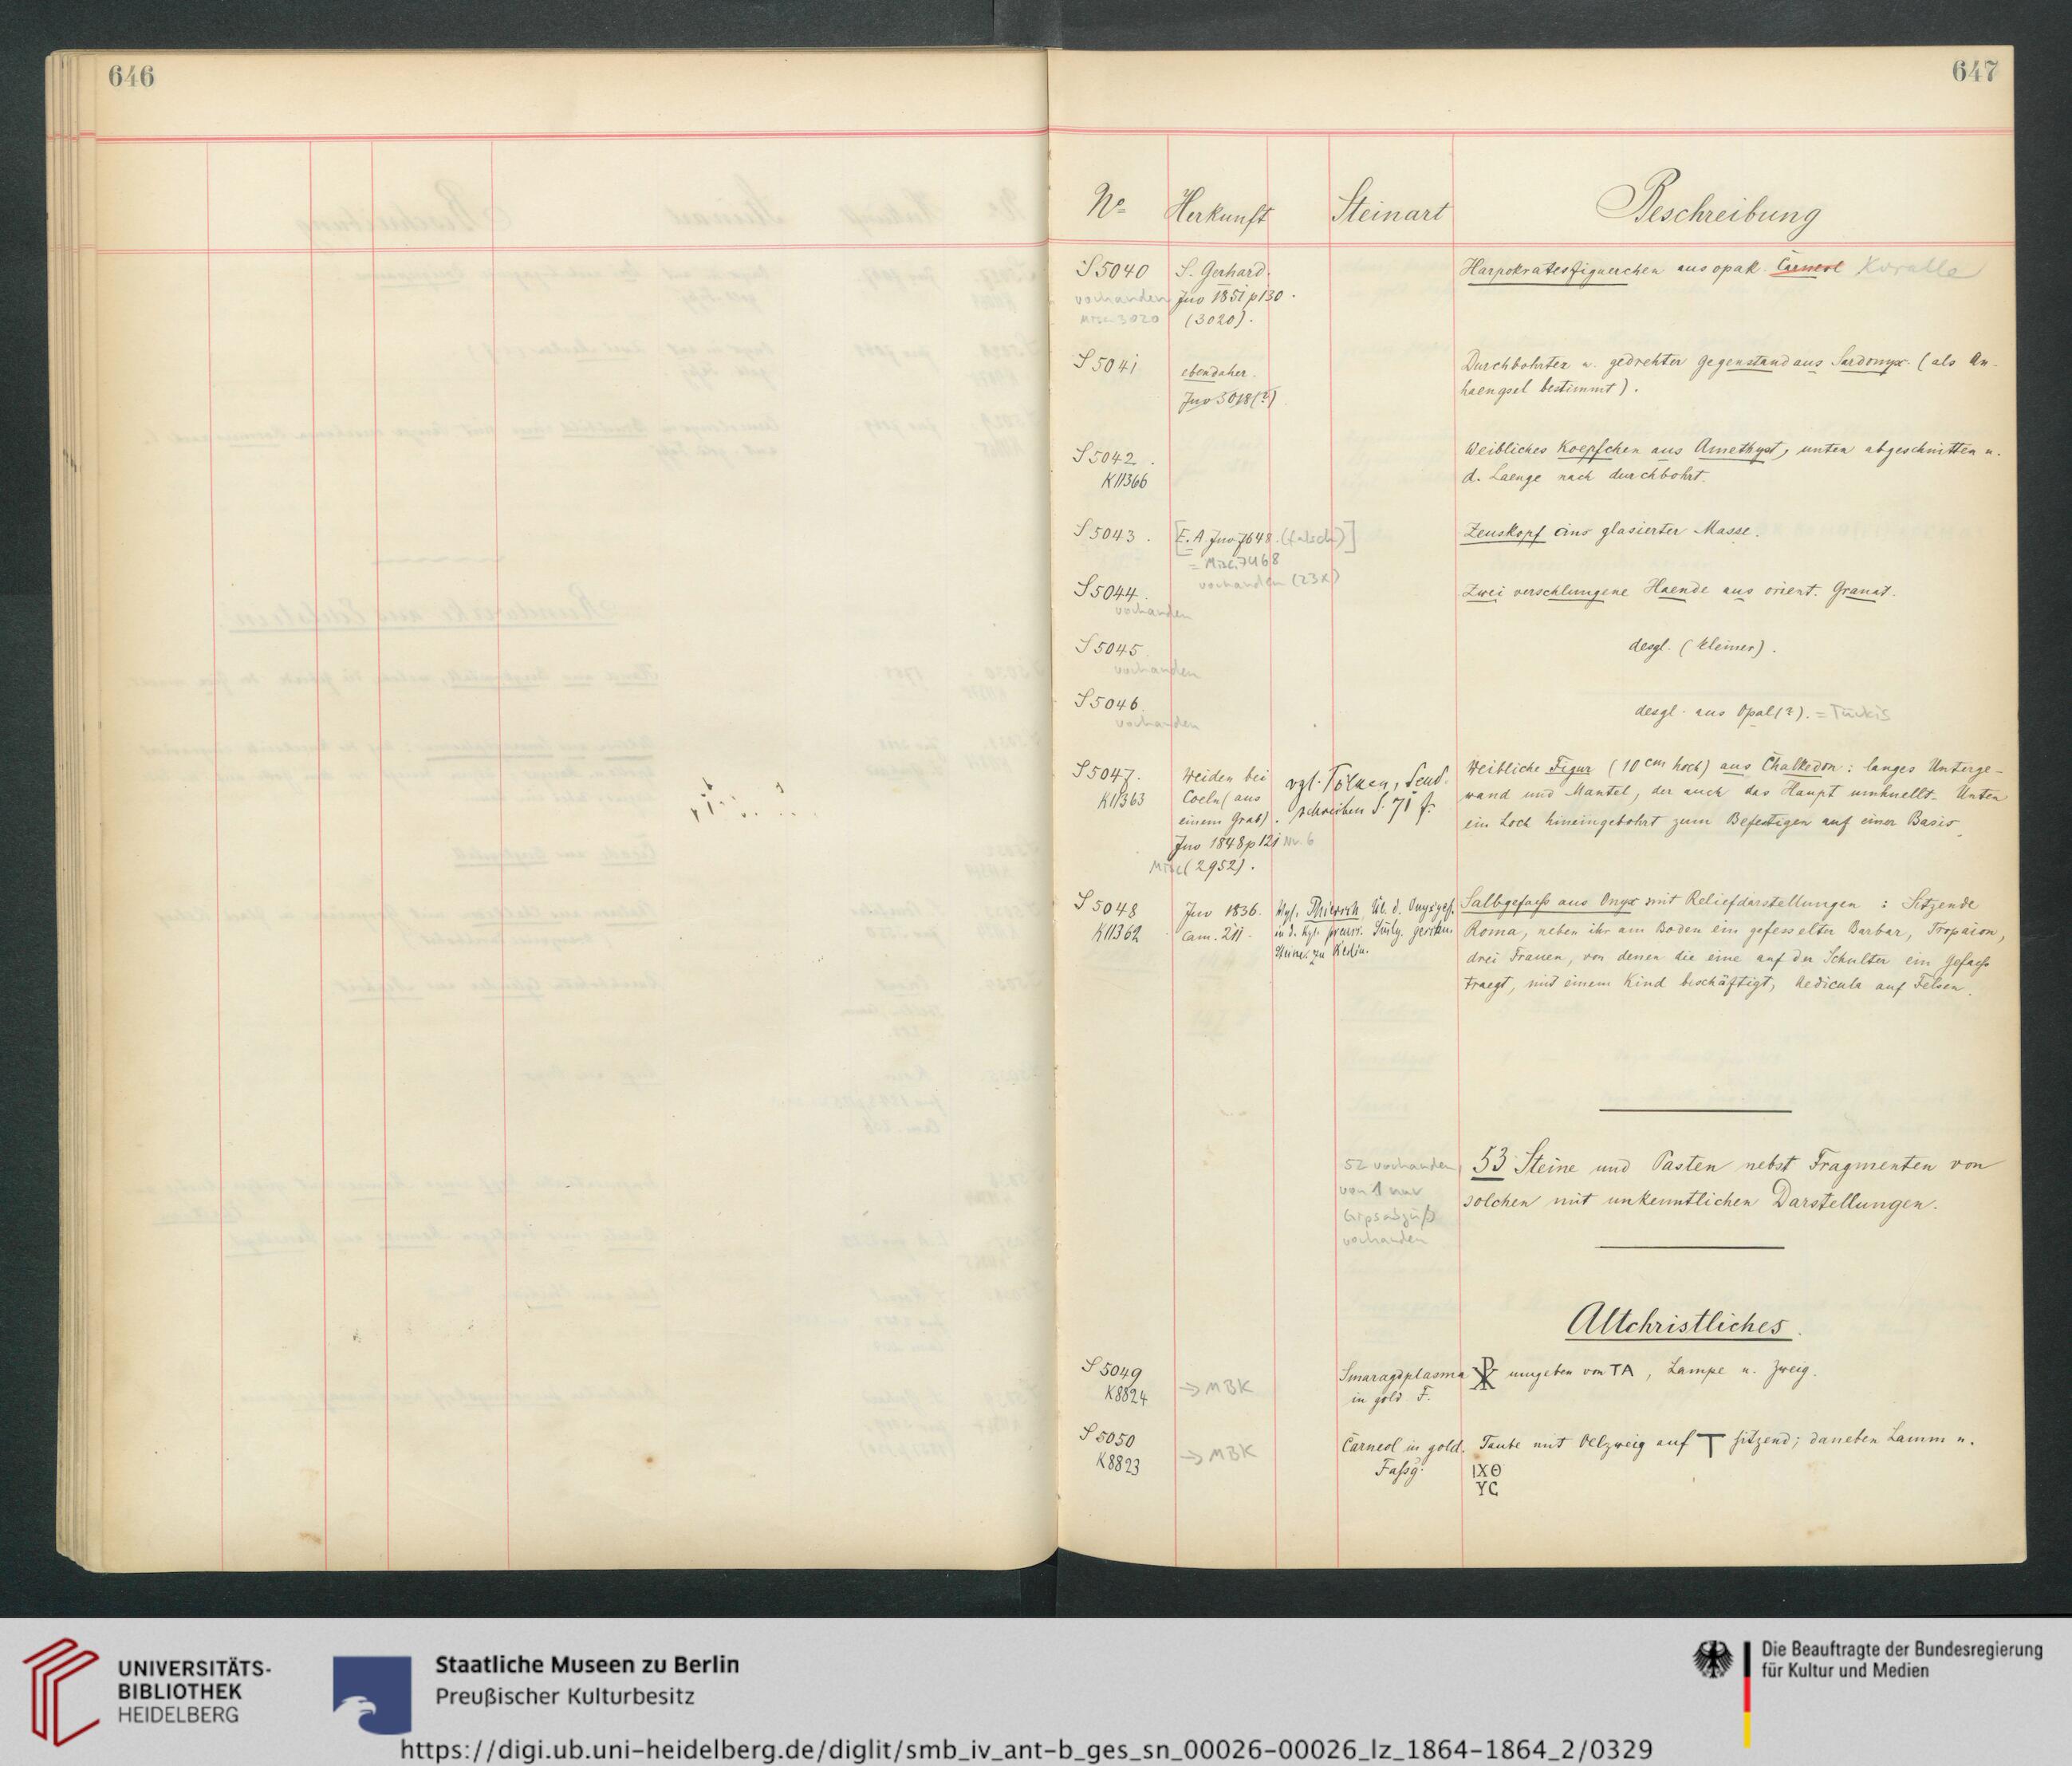 646
647
No Herkunft Steinart Beschreibung
S 5040 S. Gerhard. Harpokratesfiguerchen aus opak. Carneol Koralle
vorhanden Inv 1851 p 130.
Misc. 3020 (3020).
S 5041 ebendaher. Durchbohrter u. gedrehter Gegenstand aus Sardonyx. (als An-
Inv 3018 (?) haengsel bestimmt).
S 5042. Weibliches Koepfchen aus Amethyst, unten abgeschnitten u.
K11366 d. Laenge nach durchbohrt.
S 5043. [E. A. Inv 7648. (falsch)] Zeuskopf aus glasierter Masse.
= Misc. 7468
vorhanden (23x)
S 5044. Zwei verschlungene Haende aus orient. Granat.
vorhanden
S 5045. desgl. (kleiner).
vorhanden
S 5046. desgl. aus Opal (?). = Türkis
vorhanden
S 5047. Weiden bei vgl. Tölken, Send- Weibliche Figur (10 cm hoch) aus Chalkedon: langes Unterge-
K11363 Coeln (aus schreiben S. 71 f. wand und Mantel, der auch das Haupt umhuellt. Unten
einem Grab). ein Loch hineingebohrt zum Befestigen auf einer Basis.
Inv 1848 p 121 nr. 6
Misc (2952).
S 5048 Inv 1836. Vgl. Thiersch, Üb. d. Onyxgef. Salbgefaess aus Onyx mit Reliefdarstellungen: Sitzende
K11362 Cam. 211. in d. kgl. preuss. Smlg. geschn. Roma, neben ihr am Boden ein gefesselter Barbar, Tropaion,
Steine zu Berlin. drei Frauen, von denen die eine auf der Schulter ein Gefaess
traegt, mit einem Kind beschäftigt, Aedicula auf Felsen.
52 vorhanden, 53 Steine und Pasten nebst Fragmenten von
von 1 nur solchen mit unkenntlichen Darstellungen.
Gipsabguß
vorhanden
Altchristliches.
S 5049 Smaragdplasma ☧ umgeben von TA, Lampe u. Zweig.
K8824 → MBK in gold F.
S 5050 Carneol in gold. Taube mit Oelzweig auf T sitzend; daneben Lamm u.
K8823 → MBK Fassg. ΙΧΘ
ΥC
UNIVERSITÄTS-
BIBLIOTHEK
HEIDELBERG
Staatliche Museen zu Berlin
Preußischer Kulturbesitz
Die Beauftragte der Bundesregierung
für Kultur und Medien
https://digi.ub.uni-heidelberg.de/diglit/smb_iv_ant-b_ges_sn_00026-00026_lz_1864-1864_2/0329